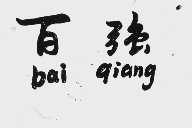 百 强
bai qiang